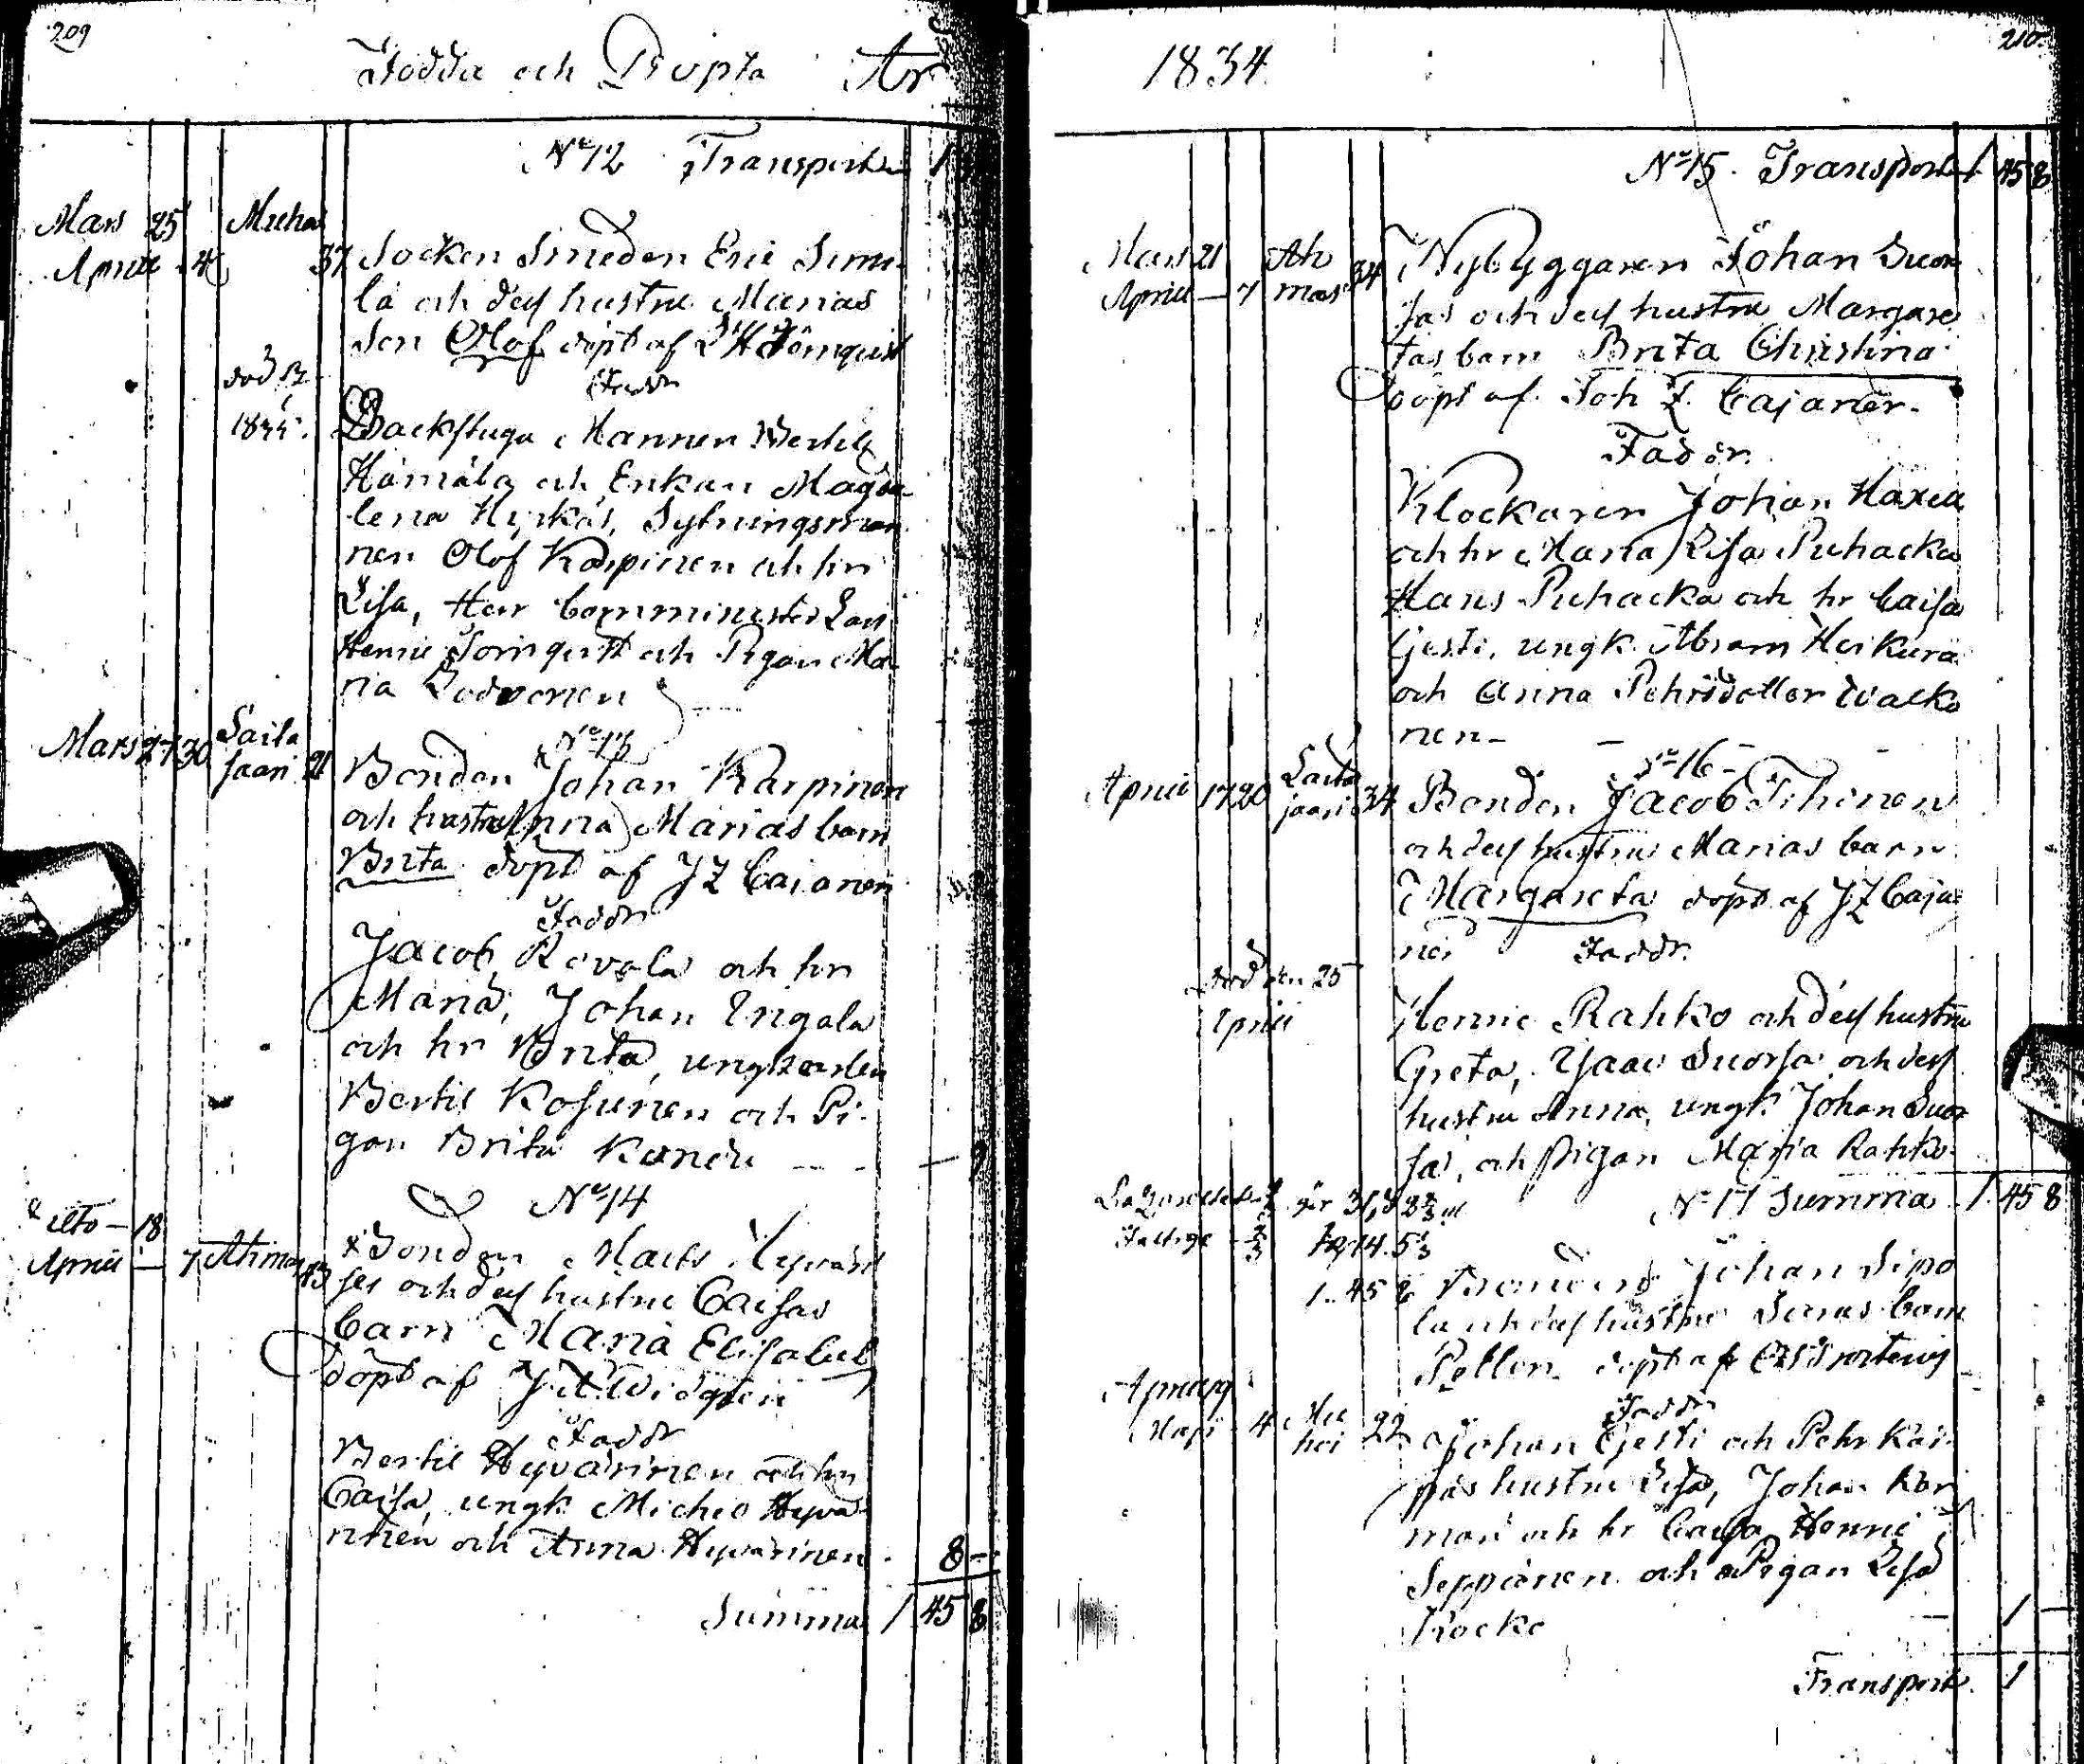 209
Födda och Döpta År
No 12 Transport 1
Mars 25 Muho
Aprill 4 37 Socken Smeden Eric Simi
lä och dess hustru Marias
Son Olof döpt af L H Törnquist
Faddr
död 12
1835.
Backstugu Mannen Bertil
Hämälä och Enkan Magda
lena Hyrkäs, Sytningsman
nen Olof Karpinen och hu
Lisa, Herr Comminister Lars
Henric Törnqvist och Pigan Ma
ria Lodvonen
No 13
Mars 27 30 Saita
saari 21 Bonden Johan Karpinen
och hustru Anna Marias barn
Brita döpt af J Z Cajanen
Faddr
Jacob Rovala och hu
Maria, Johan Ingala
och hr Brita, ungkarlen
Bertil Kosunen och Pi
gan Brita
No 14
dito - 18
Aprill - 7 Ahmas 13 Bonden Mats Hyväri
och dess hustru Caisas
barn Maria Elisabet
döpt af J Widgren
Faddr
Bertil Hyvärinen och hu
Caisa, ungk Michel Hyvä
rinen och Anna Hyvärinen 8 -
Summa 1 45 8
210
1834
No 15. Transport 1 45 8
Mars 21 Ah
Aprill - 7 mas 34 Nybyggaren Johan Suor
sas och dess hustru Margare
tas barn Brita Christina
döpt af Joh Z. Cajaner.
Faddr.
Klockaren Johan
och hr Maria Lisa Puhacka
Hans Puhacka och hr Caisa
Gesti, ungk Abram Heikura
och Anna Pehrsdotter Walko
nen -
No 16 -
Aprill 17 20 Saita
saari 34 Bonden Jacob Tihinen
och dess hustru Marias barn
Margareta döpt af J Z Caja
ner Faddr.
död den 25
Aprill
Henric Rahko och dess hustru
Greta, Isaac Suorsa och dess
hustru Anna, ungk Johan Suor
sa, och pigan Maria Rahko.
No 17 Summa 1 45 8
1. 45 8
Bonden Johan Sipo
la och dess hustru barn
Petter döpt af
Faddr
Maji 4 Mu
hos 22 Johan Gesti och Pehr Kar
pas hustru Lisa, Johan Kor
man och hr Caisa, Henric
Seppänen och Pigan Lisa
Kocko 1
Transport 1